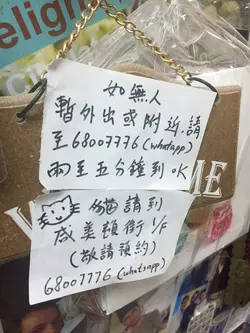 elight
如無人
暫外出或附近，請
至68007776(whatapp)
兩至五分鐘到OK
W ME
貓請到
咸美頓街1/F
(敬請預約)
68007776(whatsapp)